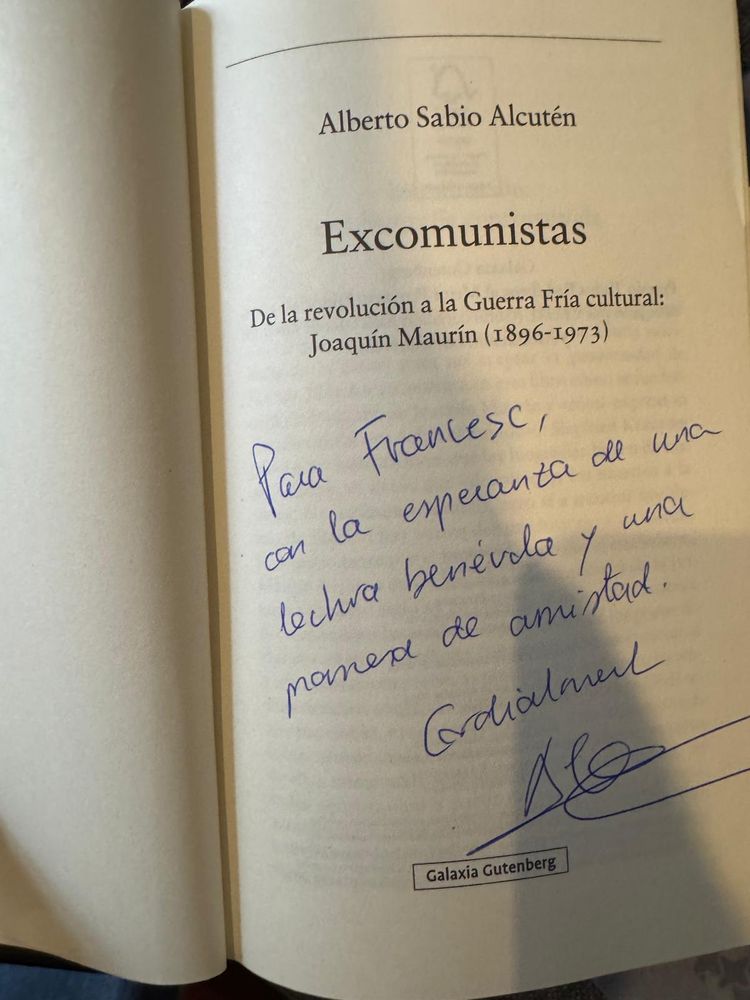 Alberto Sabio Alcutén
Excomunistas
De la revolución a la Guerra Fría cultural:
Joaquín Maurín (1896-1973)
Para Francesc,
con la esperanza de una
lectura benévola y una
promesa de amistad.
Cordialment
Galaxia Gutenberg